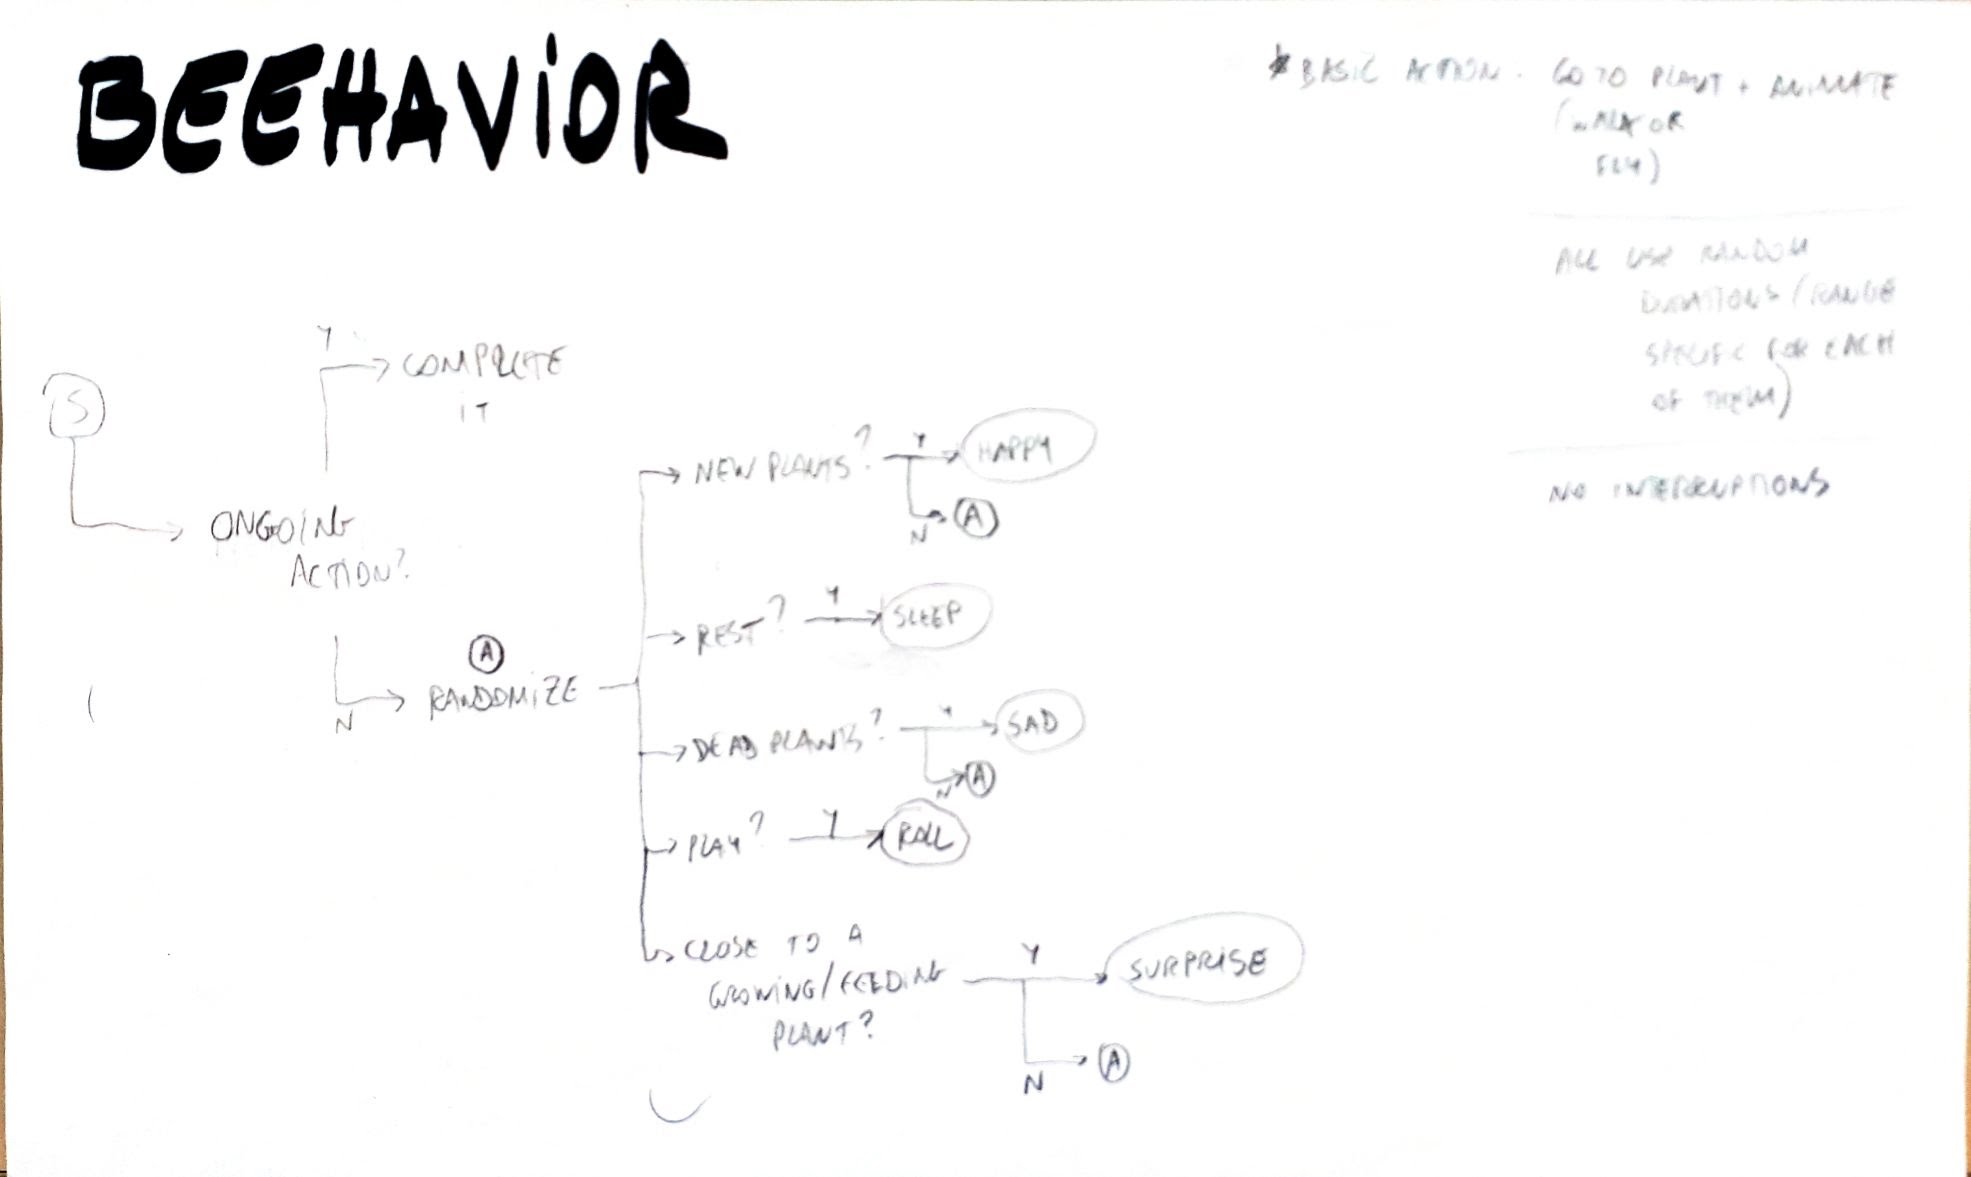 BEEHAVIOR
* BASIC ACTION. GO TO PLANT + ANIMATE
(WALK OR
FLY)
ALL USE RANDOM
DURATIONS (RANGE
SPECIFIC FOR EACH
OF THEM)
NO INTERRUPTIONS
S
ONGOING
ACTION?
Y
COMPLETE
IT
N
A
RANDOMIZE
NEW PLANTS? Y HAPPY
N A
REST? Y SLEEP
DEAD PLANTS? Y SAD
N A
PLAY? Y ROLL
CLOSE TO A
GROWING/FEEDING
PLANT?
Y SURPRISE
N A